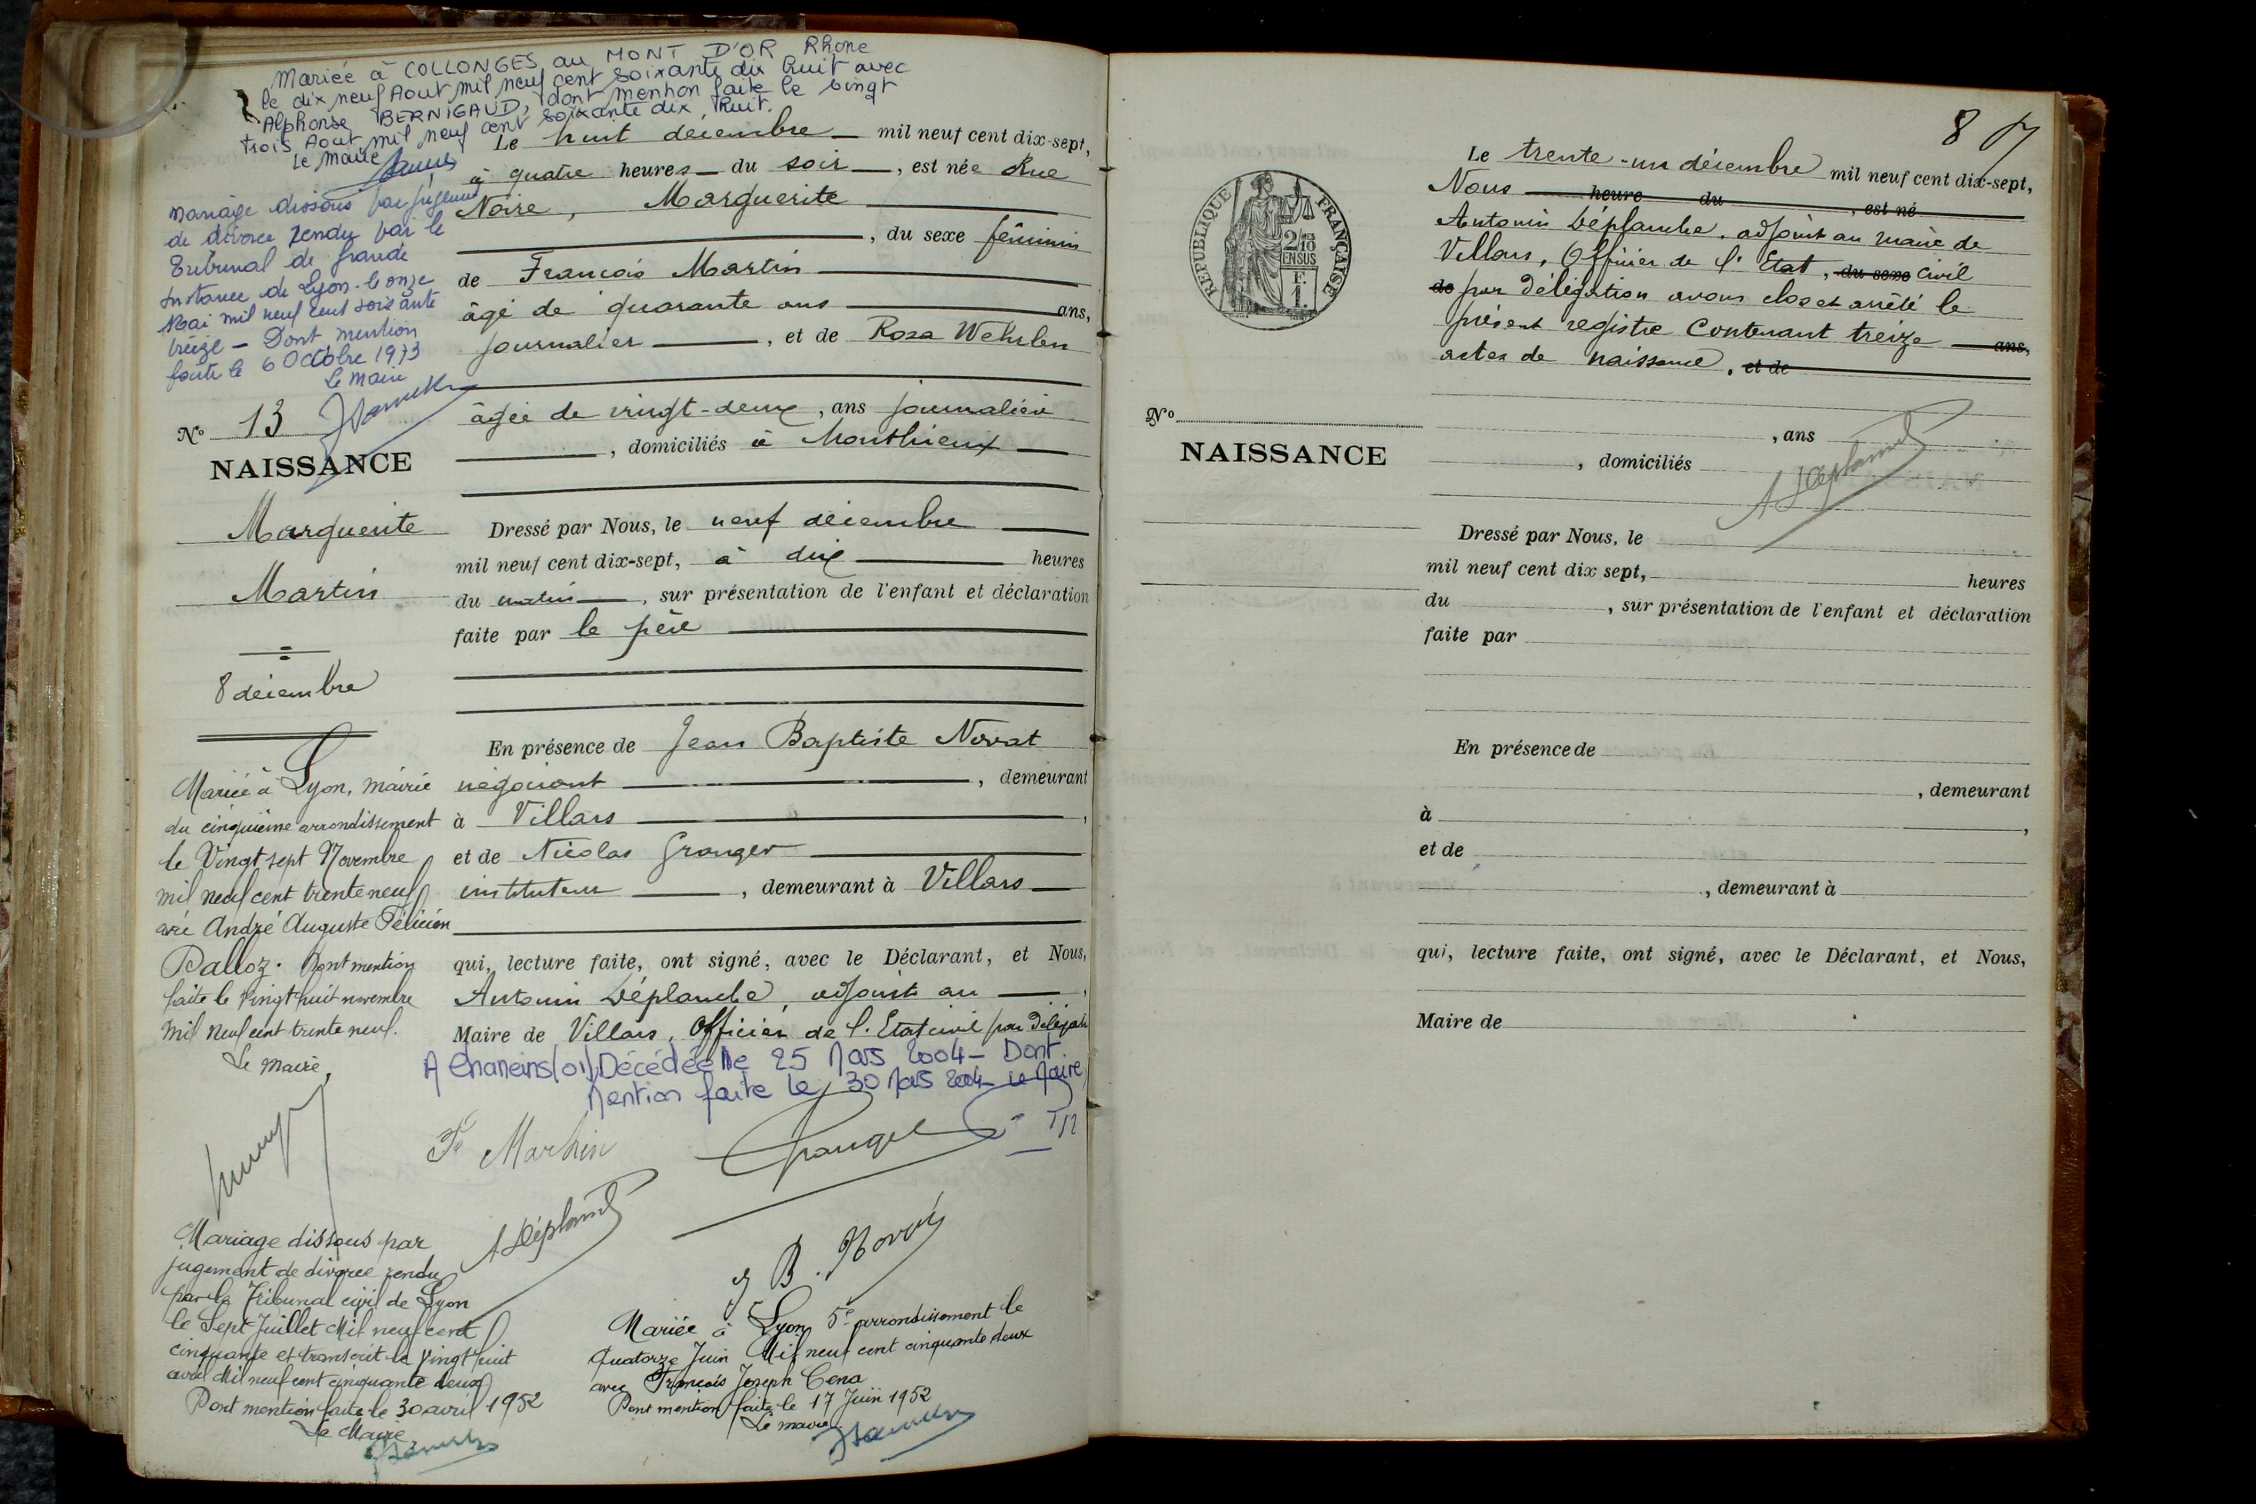 Mariée à COLLONGES au MONT D'OR Rhone
le dix neuf Aout mil neuf cent soixante dix huit avec
Alphonse BERNIGAUD, dont mention faite le vingt
trois Aout mil neuf cent soixante dix huit.
Le Maire
Mariage dissous par jugement
de divorce rendu par le
Tribunal de grande
Instance de Lyon le onze
Mai mil neuf cent soixante
treize – Dont mention
faite le 6 Octobre 1973
Le Maire
N° 13
NAISSANCE
Marguerite
Martin
8 décembre
Mariée à Lyon, mairie
du cinquième arrondissement
le Vingt sept Novembre
mil neuf cent trente neuf
avec André Auguste Félicien
Dalloz. Dont mention
faite le vingt huit novembre
mil neuf cent trente neuf.
Le Maire,
Mariage dissous par
jugement de divorce rendu
par le Tribunal civil de Lyon
le Sept Juillet Mil neuf cent
cinquante et transcrit le vingt huit
avril Mil neuf cent cinquante deux
Dont mention faite le 30 avril 1952
Le Maire,
Le huit décembre mil neuf cent dix-sept,
à quatre heures du soir, est née Rue
Noire, Marguerite
, du sexe féminin
de François Martin
âgé de quarante ans ans,
journalier, et de Rosa Wehrlen
âgée de vingt-deux, ans journalière
, domiciliés à Monthieux
Dressé par Nous, le neuf décembre
mil neuf cent dix-sept, à dix heures
du matin, sur présentation de l'enfant et déclaration
faite par le père
En présence de Jean Baptiste Novat
négociant, demeurant
à Villars,
et de Nicolas Granger
instituteur, demeurant à Villars
qui, lecture faite, ont signé, avec le Déclarant, et Nous,
Antonin Déplanche, adjoint au
Maire de Villars, Officier de l'Etat civil par délégat
A Chaneins (01) Décédée le 25 Mars 2004 – Dont
Mention faite le 30 Mars 2004 Le Maire
Fs Martin
Granger
A Déplanche
J B. Novat
Mariée à Lyon 5e arrondissement le
quatorze Juin Mil neuf cent cinquante deux
avec François Joseph Cena
Dont mention faite le 17 Juin 1952
Le maire
8
REPUBLIQUE FRANÇAISE
2/10 EN SUS
F.
1.
Le trente-un décembre mil neuf cent dix-sept,
Nous heure du, est né
Antonin Déplanche, adjoint au maire de
Villars, Officier de l'Etat, du sexe civil
de par délégation avons clos et arrêté le
présent registre contenant treize ans,
actes de naissance, et de
N°
NAISSANCE
, ans
, domiciliés
A Déplanche
Dressé par Nous, le
mil neuf cent dix sept, heures
du, sur présentation de l'enfant et déclaration
faite par
En présence de
, demeurant
à,
et de
, demeurant à
qui, lecture faite, ont signé, avec le Déclarant, et Nous,
Maire de